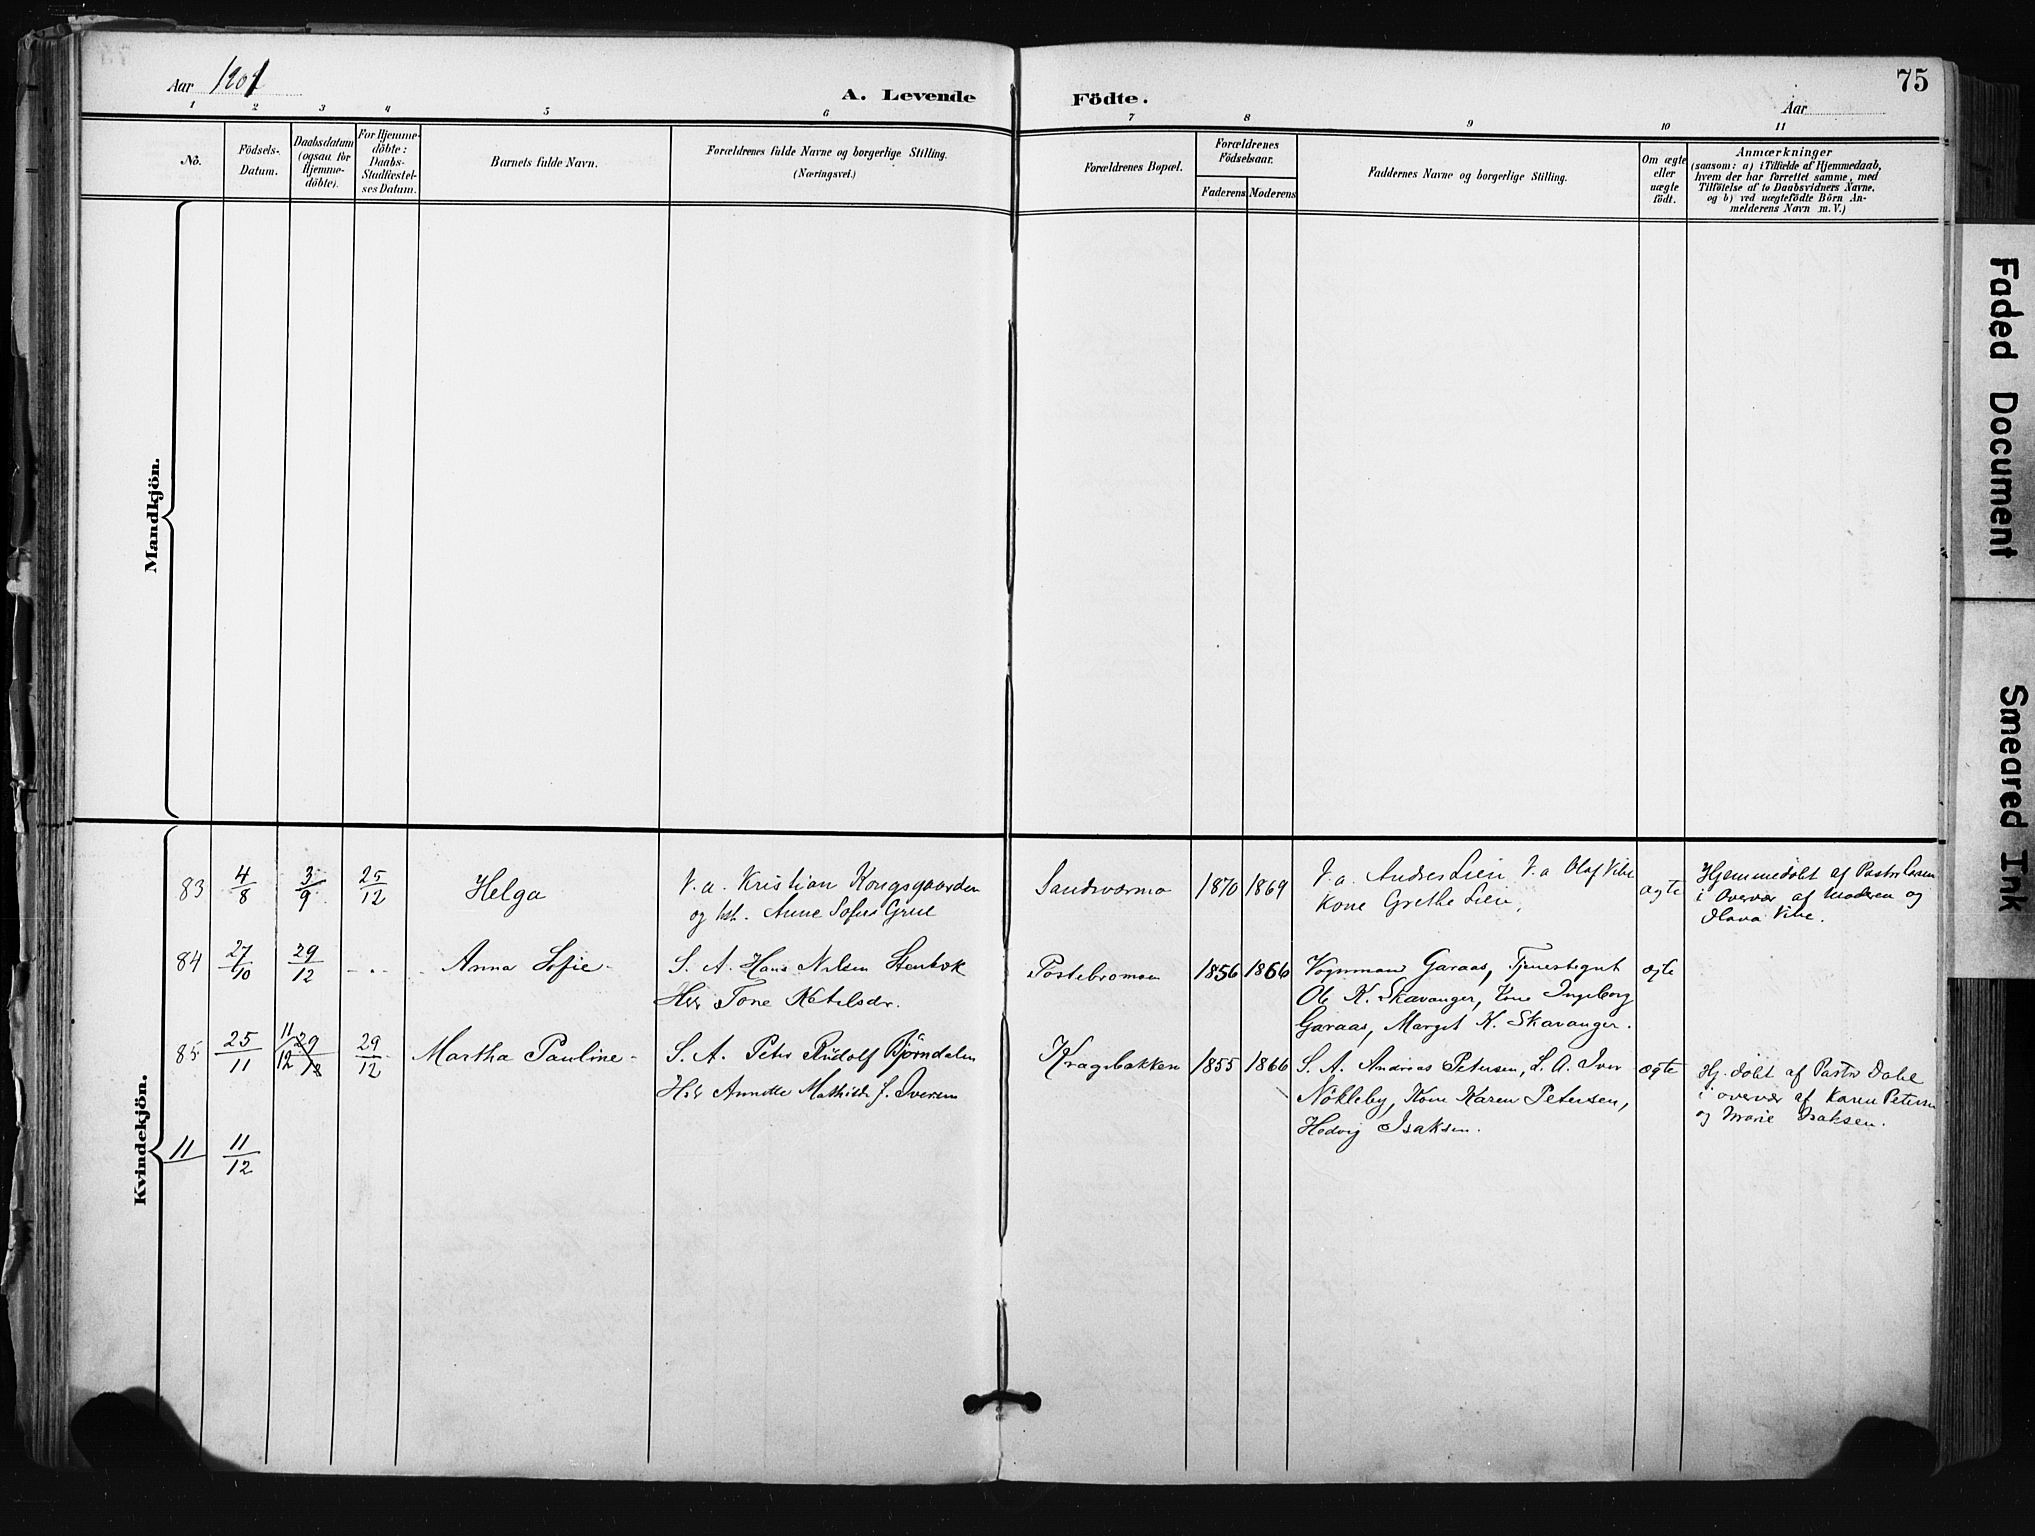 75
Aar 1901
A. Levende Födte.
Aar
1 2 3 4 5 6 7 8 9 10 11
Nô.
Födsels-
Datum.
Daabsdatum
(ogsaa for
Hjemme-
döbte).
For Hjemme-
döbte:
Daabs-
Stadfæstel-
ses Datum.
Barnets fulde Navn.
Forældrenes fulde Navne og borgerlige Stilling.
(Næringsvei.)
Forældrenes Bopæl.
Forældrenes
Födselsaar.
Faderens Moderens
Faddernes Navne og borgerlige Stilling.
Om ægte
eller
uægte
födt.
Anmærkninger
(saasom: a) i Tilfælde af Hjemmedaab,
hvem der har forrettet samme, med
Tilföielse af to Daabsvidners Navne,
og b) ved uægtefödte Börn An-
melderens Navn m. V.)
Mandkjön.
Kvindekjön.
83 4/8 3/9 25/12 Helga
F. a. Kristian Kongsgaarden
og hst. Anne Sofie Grue
Sandsværmo 1870 1869
F. a. Andres Lien F. a Olaf Vibe
Kone Grethe Lien,
ægte
Hjemmedøbt af Pastor Larsen
i Overvær af Moderen og
Vibe.
84 27/10 29/12 - . . Anna Sofie -
S. A. Hans Nilsen Stenbæk
Hst Tone Ketelsdr.
Postebromoen 1856 1856
Vognmand Garaas, Tjenestegut
Ole K. Skavanger, Kone Ingeborg
Garaas, Margit K. Skavanger.
ægte
85 25/11 11/12 29/12 29/12 Martha Pauline -
S. A. Peter Rudolf Bjørndalen
Hst Annette Mathilde J. Iversen
Kragsbakken 1855 1866
S. A. Andreas Petersen, S. A. Iver
Nökleby, Kone Karen Petersen,
Hedvig Isaksen.
ægte
Hj. døbt af Pastor Dahl
i overvær af Karen Petersen
og Marie Isaksen.
11 11/12
Faded Document
Smeared Ink